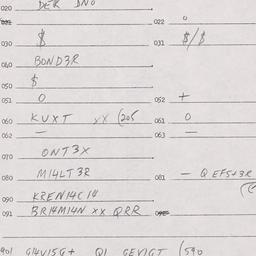 020 DER DNO
022 0
030 $ 031 $/$
040 BOND3R
050 $
051 0 052 +
060 KUXT XX (205 061 0
062 — 063 —
070 ONT3X
080 MI4LT3R 081 — Q EFS+3R
090 KREN14C14
091 BR14M14N XX QRR
901 G14V15G+ Q1 GEV1GT (590